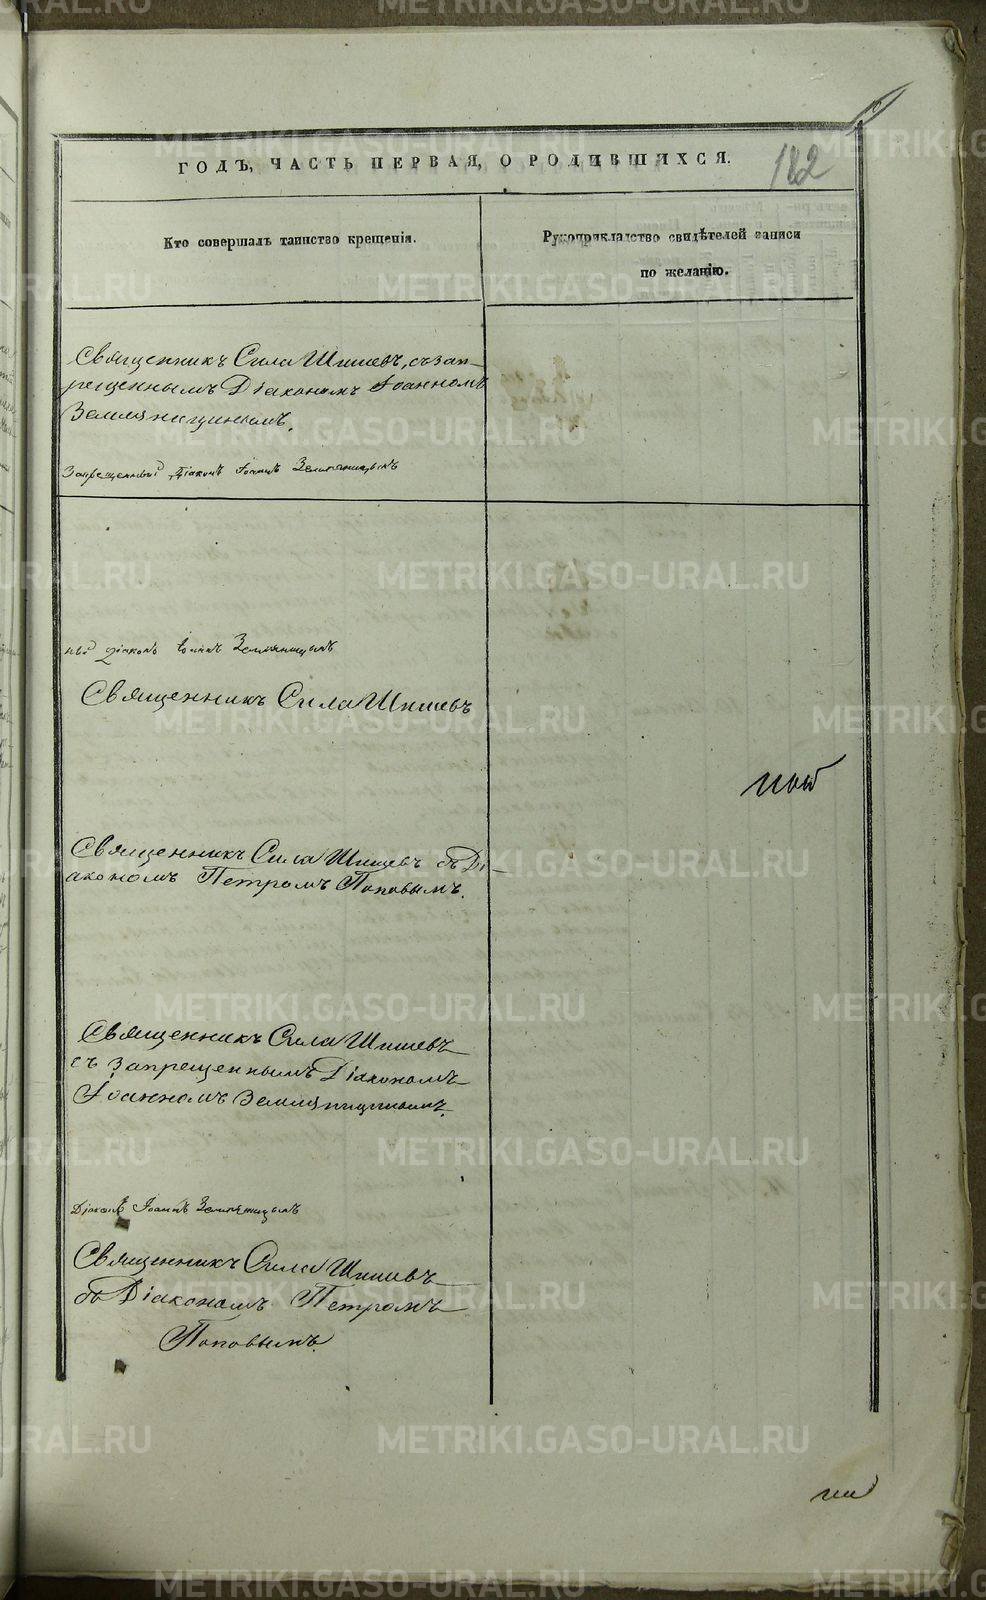 ГОДЪ, ЧАСТЬ ПЕРВАЯ, О РОДИВШИХСЯ.
182
Кто совершалъ таинство крещенія.
Рукоприкладство свидѣтелей записи
по желанію.
Священникъ Сила Шишевъ, съ зап-
рещеннымъ Діакономъ Іоанномъ
Земляницинымъ.
Запрещенный Діаконъ Іоаннъ Земляницынъ
ный діаконъ Іоаннъ Земляницынъ
Священникъ Сила Шишевъ
Священникъ Сила Шишевъ съ Ді-
акономъ Петромъ Поповымъ.
Священникъ Сила Шишевъ
съ запрещеннымъ Діакономъ
Іоанномъ Земляницинымъ.
Діаконъ Іоаннъ Земляницынъ
Священникъ Сила Шишевъ
съ Діакономъ Петромъ
Поповымъ.
METRIKI.GASO-URAL.RU